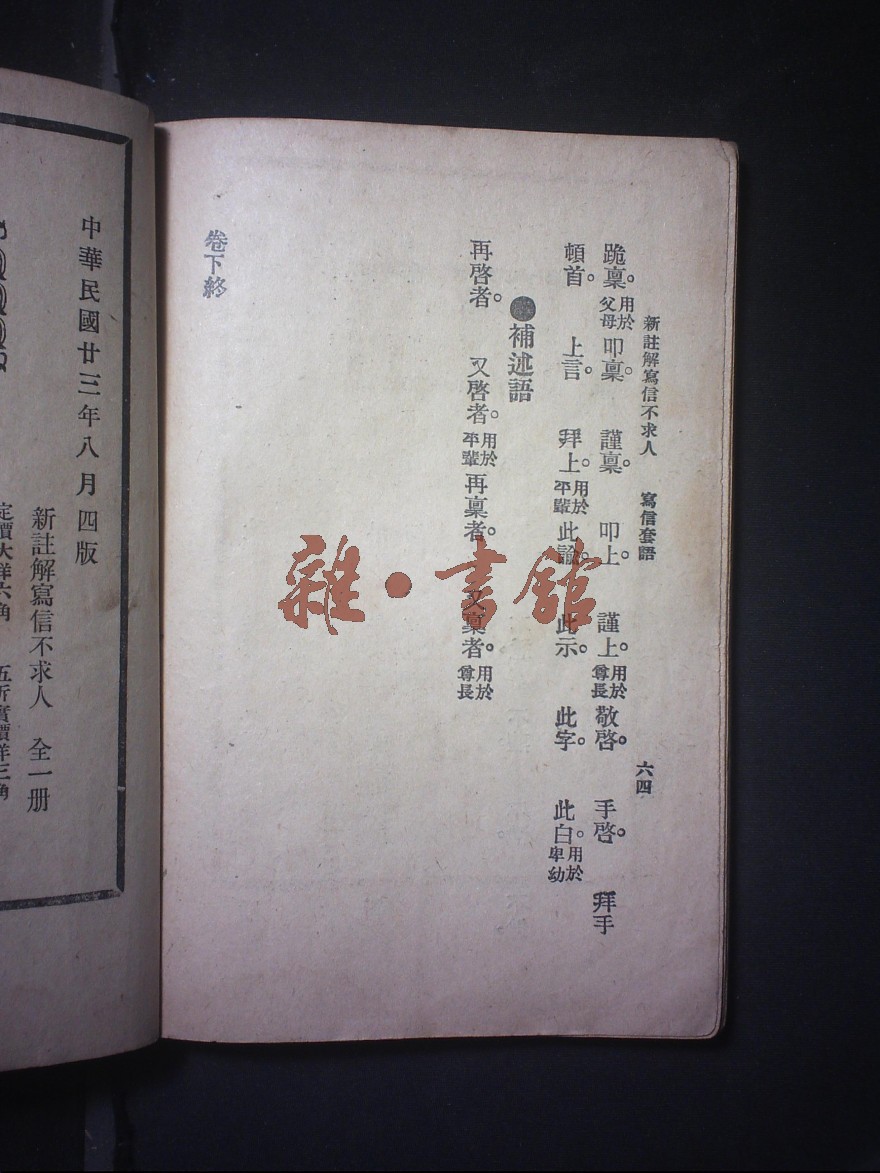 新註解寫信不求人 寫信套語 六四
跪稟。用於父母 叩稟。 謹稟。 叩上。 謹上。用於尊長 敬啓。 手啓。 拜手
頓首。 上言。 拜上。用於平輩 此諭。 此示。 此字。 此白。用於卑幼
●補述語
再啓者。 又啓者。用於平輩 再稟者。 又稟者。用於尊長
卷下終
中華民國廿三年八月四版
新註解寫信不求人 全一册
定價大洋六角 五折實價洋三角
雜·書館